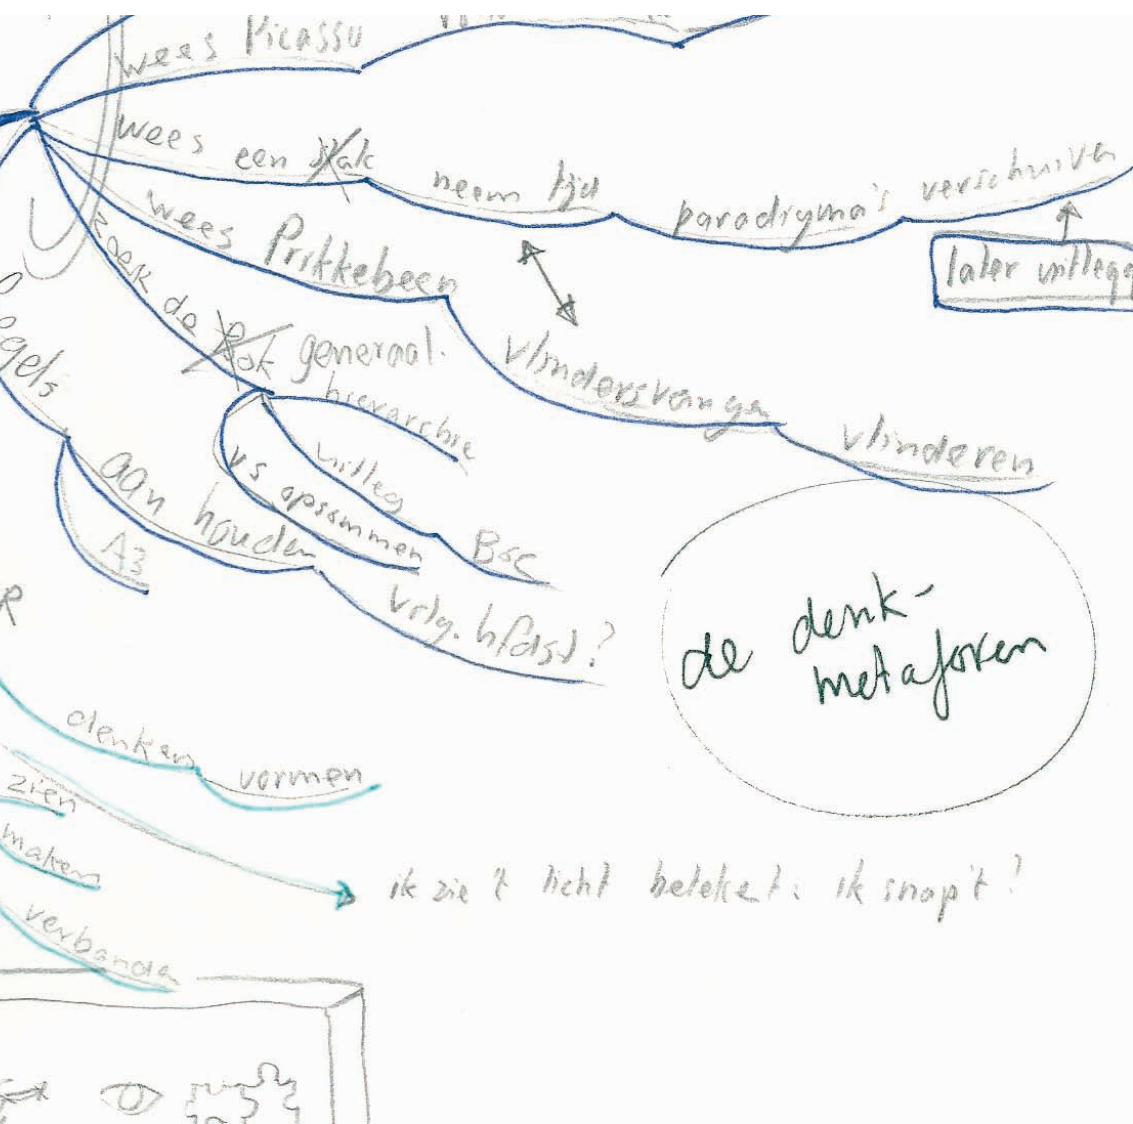 wees Picasso
wees een
neem tijd
paradigma's
verschuiven
later uitlegg
wees Prikkebeen
vlindersvangen
vlinderen
zoek de
generaal.
hierarchie
uitleg
Bsc
vs opsommen
regels
aan houden
A3
vrlg. hfdst?
R
de denk-
metaforen
denken
vormen
zien
maken
verbanden
ik zie 't licht betekent: ik snap't!